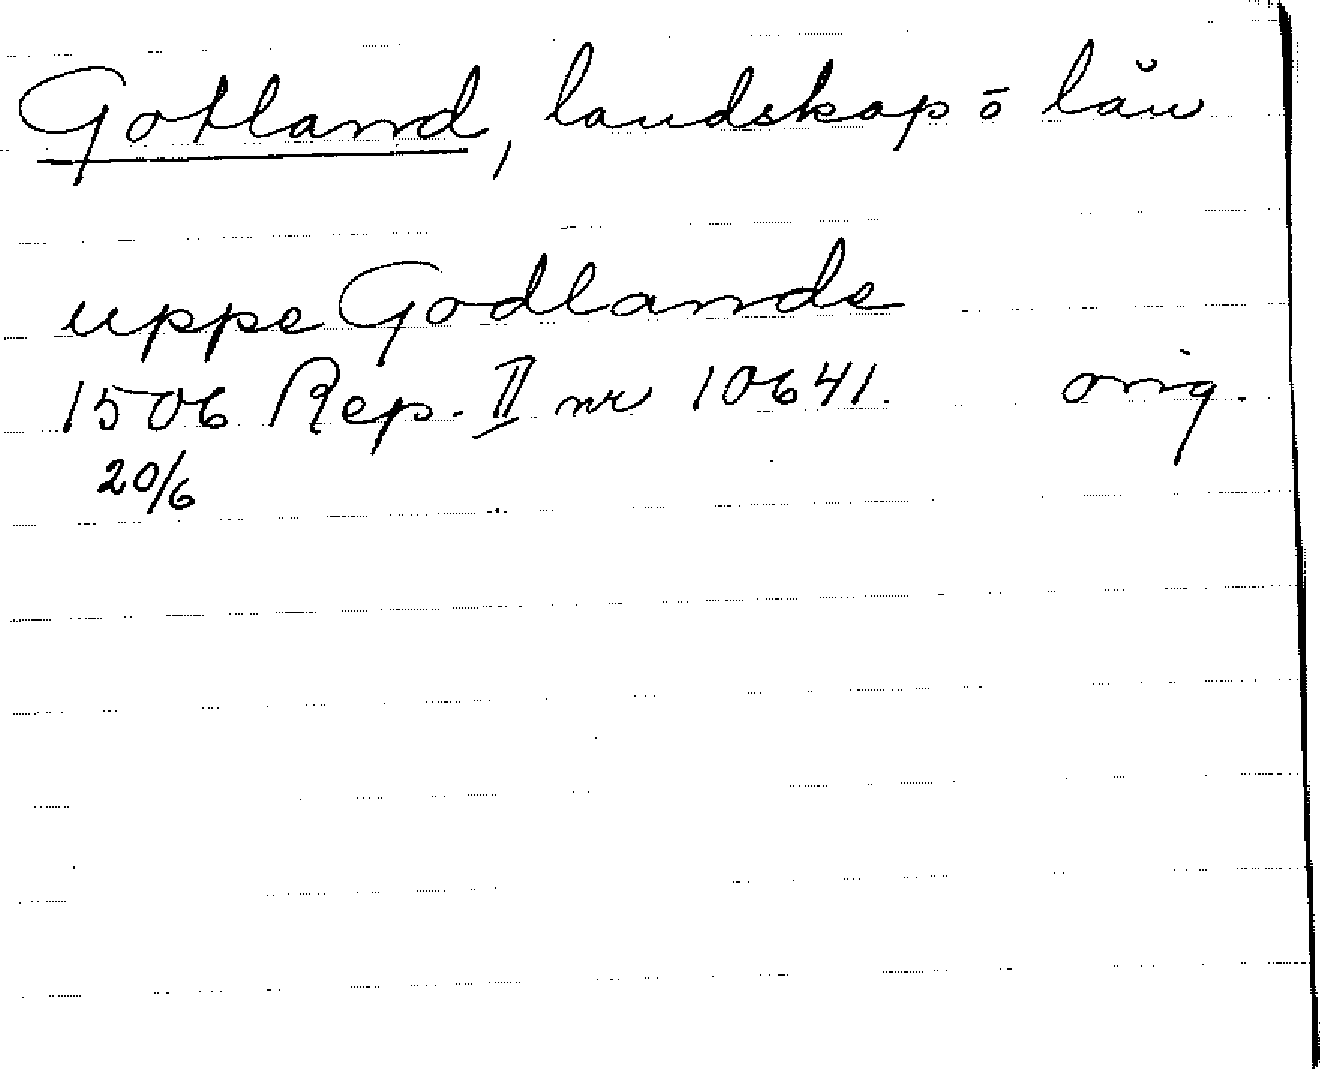 Gotland, landskap o län
uppe Godlande
1506 Rep. II nr 10641. orig.
20/6